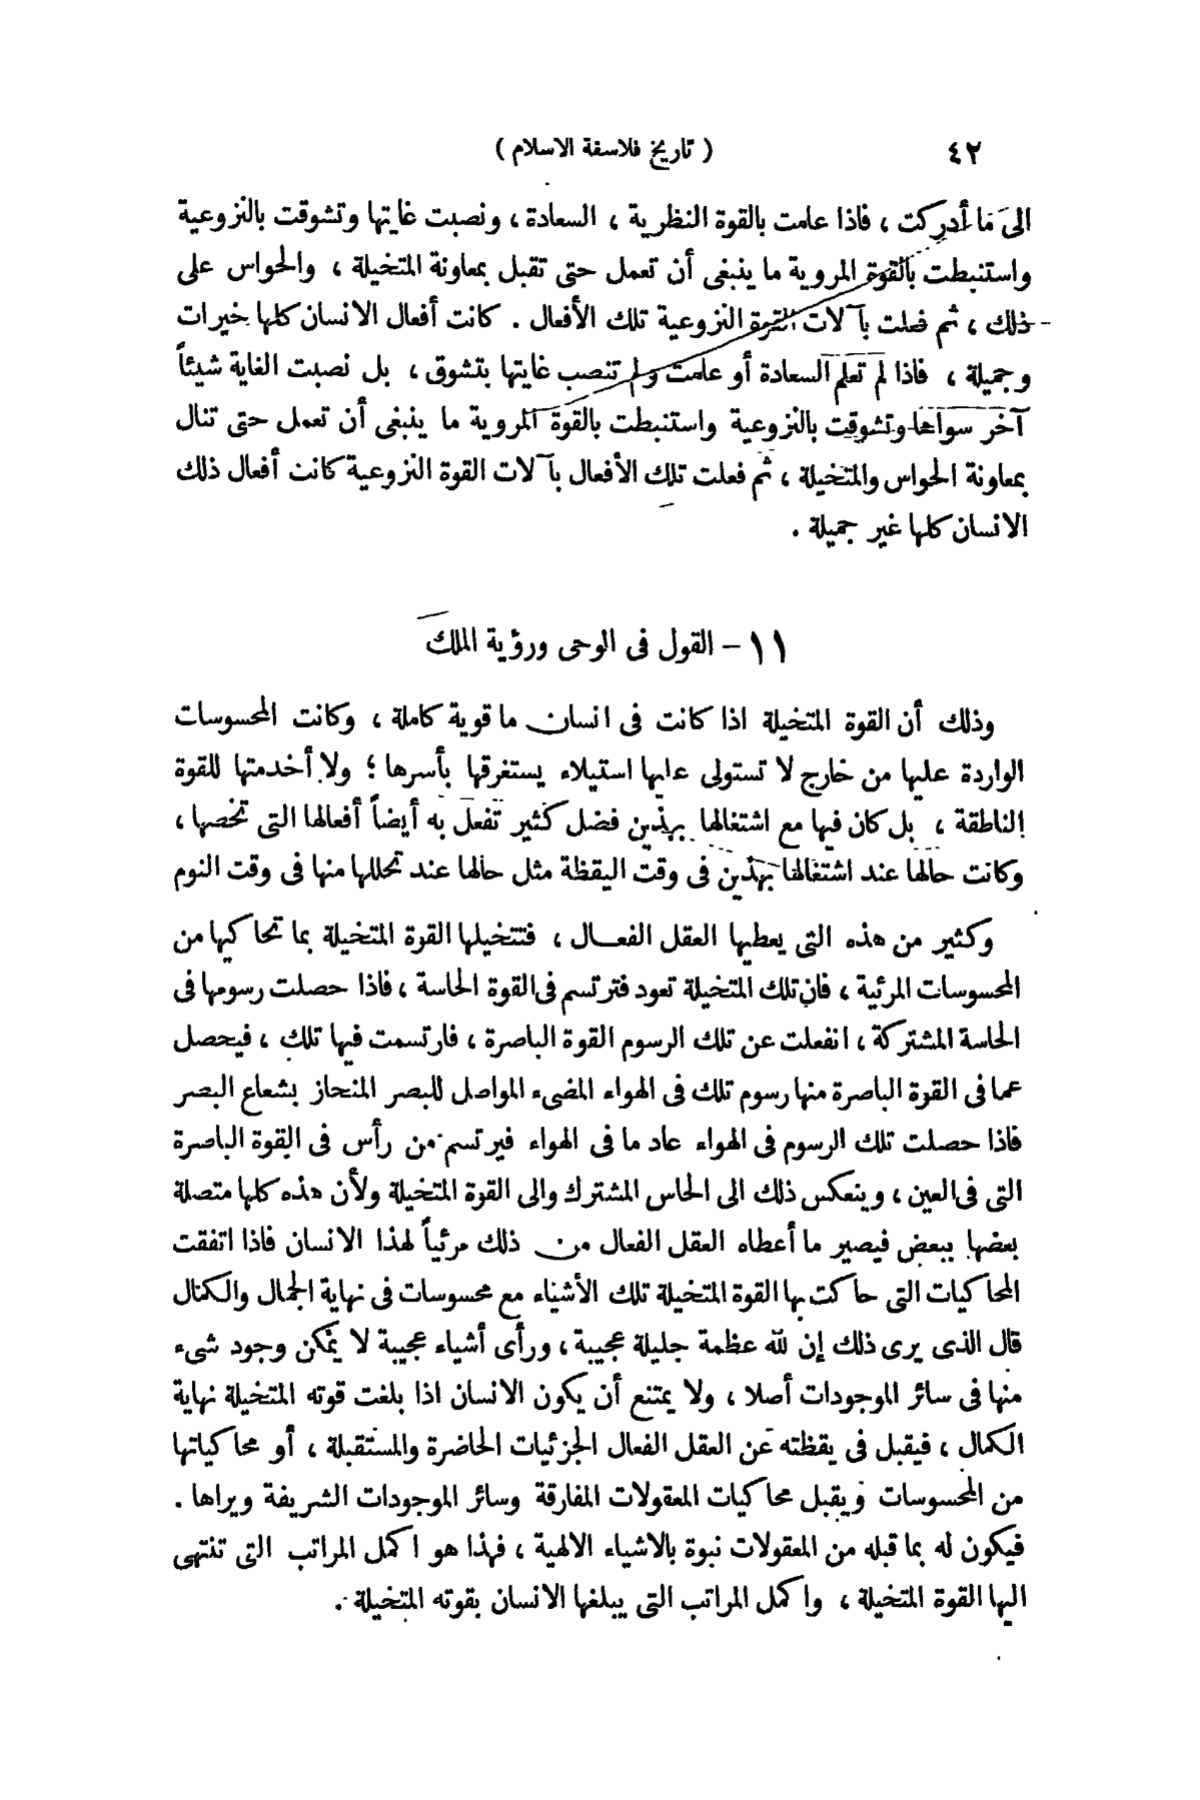 ٤٢
( تاريخ فلاسفة الاسلام )
الى ما أدركت ، فاذا علمت بالقوة النظرية ، السعادة ، ونصبت غايتها وتشوقت بالنزوعية
واستنبطت بالقوة المروية ما ينبغى أن تعمل حتى تقبل بمعاونة المتخيلة ، والحواس على
ذلك ، ثم فعلت بآلات القوة النزوعية تلك الأفعال . كانت أفعال الانسان كلها خيرات
وجميلة ، فاذا لم تعلم السعادة أو علمت ولم تنصب غايتها بتشوق ، بل نصبت الغاية شيئاً
آخر سواها وتشوقت بالنزوعية واستنبطت بالقوة المروية ما ينبغى أن تعمل حتى تنال
بمعاونة الحواس والمتخيلة ، ثم فعلت تلك الأفعال بآلات القوة النزوعية كانت أفعال ذلك
الانسان كلها غير جميلة .
١١ – القول فى الوحى ورؤية الملك
وذلك أن القوة المتخيلة اذا كانت فى انسان ما قوية كاملة ، وكانت المحسوسات
الواردة عليها من خارج لا تستولى عليها استيلاء يستغرقها بأسرها ؛ ولا أخدمتها للقوة
الناطقة ، بل كان فيها مع اشتغالها بهذين فضل كثير تفعل به أيضاً أفعالها التى تخصها ،
وكانت حالها عند اشتغالها بهذين فى وقت اليقظة مثل حالها عند تحللها منها فى وقت النوم
وكثير من هذه التى يعطيها العقل الفعال ، فتتخيلها القوة المتخيلة بما تحاكيها من
المحسوسات المرئية ، فان تلك المتخيلة تعود فترتسم فى القوة الحاسة ، فاذا حصلت رسومها فى
الحاسة المشتركة ، انفعلت عن تلك الرسوم القوة الباصرة ، فارتسمت فيها تلك ، فيحصل
عما فى القوة الباصرة منها رسوم تلك فى الهواء المضىء المواصل للبصر المنحاز بشعاع البصر
فاذا حصلت تلك الرسوم فى الهواء عاد ما فى الهواء فيرتسم من رأس فى القوة الباصرة
التى فى العين ، وينعكس ذلك الى الحاس المشترك والى القوة المتخيلة ولأن هذه كلها متصلة
بعضها ببعض فيصير ما أعطاه العقل الفعال من ذلك مرئياً لهذا الانسان فاذا اتفقت
المحاكيات التى حاكت بها القوة المتخيلة تلك الأشياء مع محسوسات فى نهاية الجمال والكمال
قال الذى يرى ذلك إن لله عظمة جليلة عجيبة ، ورأى أشياء عجيبة لا يمكن وجود شىء
منها فى سائر الموجودات أصلا ، ولا يمتنع أن يكون الانسان اذا بلغت قوته المتخيلة نهاية
الكمال ، فيقبل فى يقظته عن العقل الفعال الجزئيات الحاضرة والمستقبلة ، أو محاكياتها
من المحسوسات ويقبل محاكيات المعقولات المفارقة وسائر الموجودات الشريفة ويراها .
فيكون له بما قبله من المعقولات نبوة بالاشياء الالهية ، فهذا هو اكمل المراتب التى تنتهى
اليها القوة المتخيلة ، واكمل المراتب التى يبلغها الانسان بقوته المتخيلة .